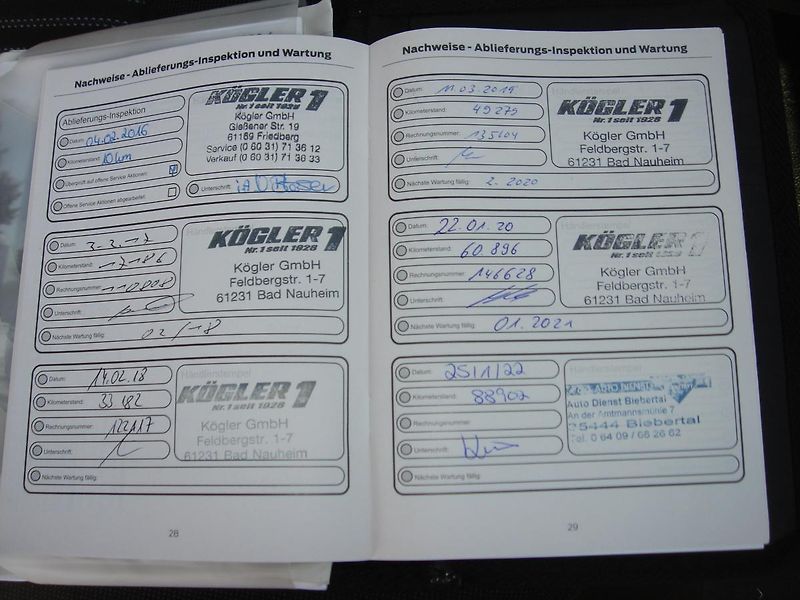 Nachweise - Ablieferungs-Inspektion und Wartung
Ablieferungs-Inspektion
Datum: 04.02.2016
Kilometerstand: 10 km
Überprüft auf offene Service Aktionen:
Offene Service Aktionen abgearbeitet:
KÖGLER 1
Nr. 1 seit 1928
Kögler GmbH
Gießener Str. 19
61169 Friedberg
Service (0 60 31) 71 36 12
Verkauf (0 60 31) 71 36 33
Unterschrift: i.A.
Datum: 3.2.17
Kilometerstand: 17186
Rechnungsnummer: 110008
Unterschrift:
Nächste Wartung fällig: 02/18
KÖGLER 1
Nr. 1 seit 1928
Kögler GmbH
Feldbergstr. 1-7
61231 Bad Nauheim
Datum: 14.02.18
Kilometerstand: 33 482
Rechnungsnummer: 122117
Unterschrift:
Nächste Wartung fällig:
Händlerstempel
KÖGLER 1
Nr. 1 seit 1928
Kögler GmbH
Feldbergstr. 1-7
61231 Bad Nauheim
28
Nachweise - Ablieferungs-Inspektion und Wartung
Datum: 11.03.2019
Kilometerstand: 49279
Rechnungsnummer: 135104
Unterschrift:
Nächste Wartung fällig: 2. 2020
Händlerstempel
KÖGLER 1
Nr. 1 seit 1928
Kögler GmbH
Feldbergstr. 1-7
61231 Bad Nauheim
Datum: 22.01.20
Kilometerstand: 60.896
Rechnungsnummer: 146628
Unterschrift:
Nächste Wartung fällig: 01.2021
Händlerstempel
KÖGLER 1
Nr. 1 seit 1928
Kögler GmbH
Feldbergstr. 1-7
61231 Bad Nauheim
Datum: 25/1/22
Kilometerstand: 88902
Rechnungsnummer:
Unterschrift:
Nächste Wartung fällig:
Händlerstempel
Auto Dienst Biebertal
An der Amtmannsmühle 7
35444 Biebertal
Tel. 0 64 09 / 66 26 62
29